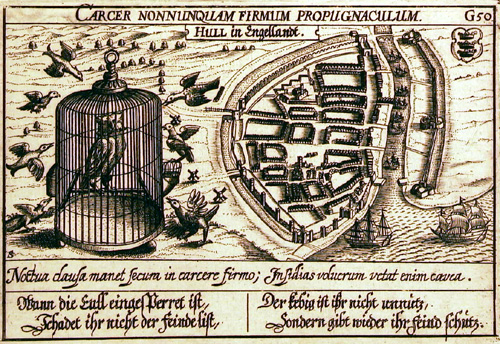 CARCER NONNUNQUAM FIRMUM PROPUGNACULUM.
G50
HULL in Engellandt.
Noctua clausa manet secura in carcere firmo; Insidias volucrum vetat enim cavea.
Wann die Eull eingesperret ist,
Schadet ihr nicht der feinde list,
Der kebig ist ihr nicht unnütz,
Sondern gibt wieder ihr feind schütz.